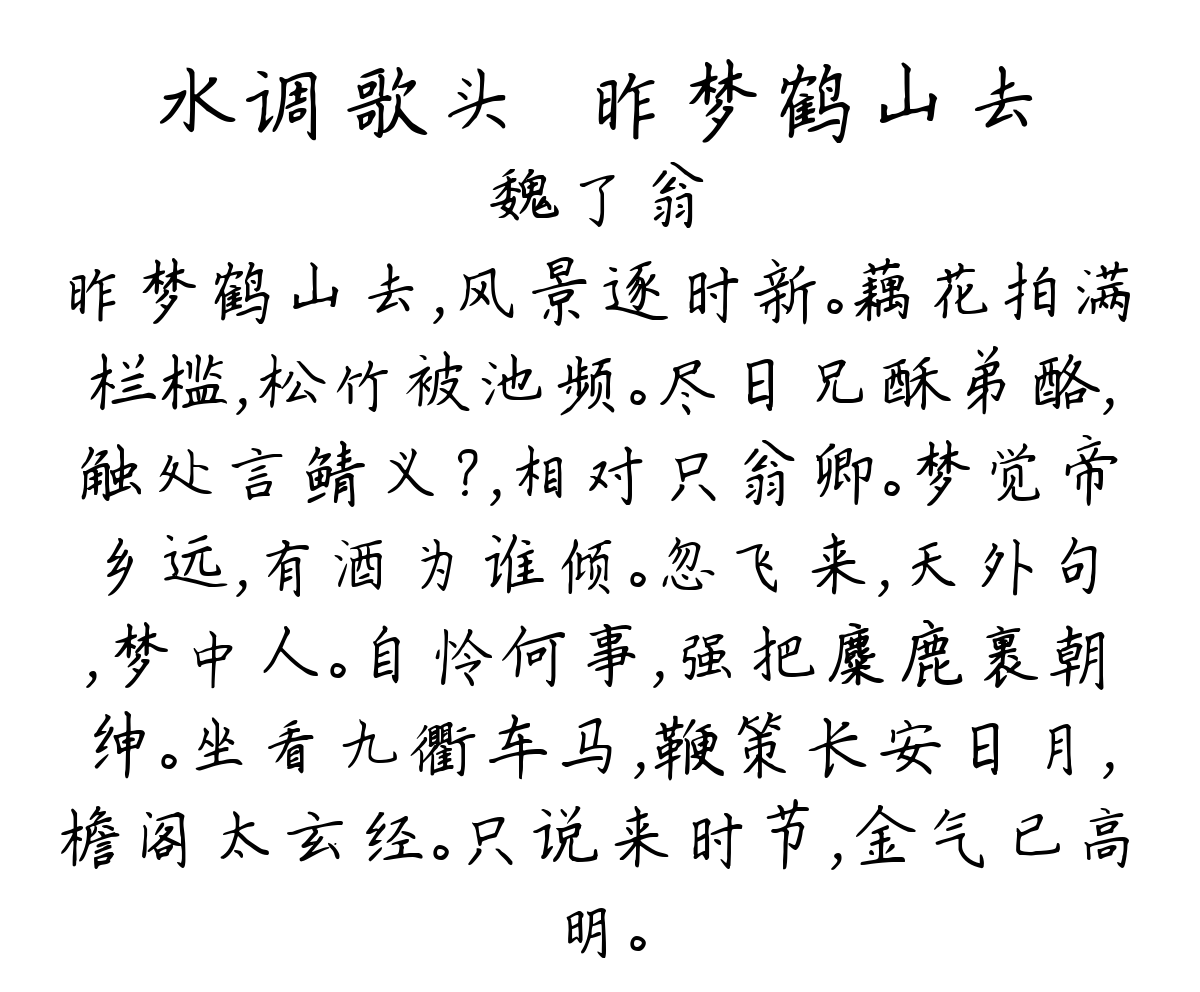 水调歌头 昨梦鹤山去
魏了翁
昨梦鹤山去,风景逐时新。藕花拍满
栏槛,松竹被池频。尽日兄酥弟酪,
触处言鲭义?,相对只翁卿。梦觉帝
乡远,有酒为谁倾。忽飞来,天外句
,梦中人。自怜何事,强把麋鹿裹朝
绅。坐看九衢车马,鞭策长安日月,
檐阁太玄经。只说来时节,金气已高
明。